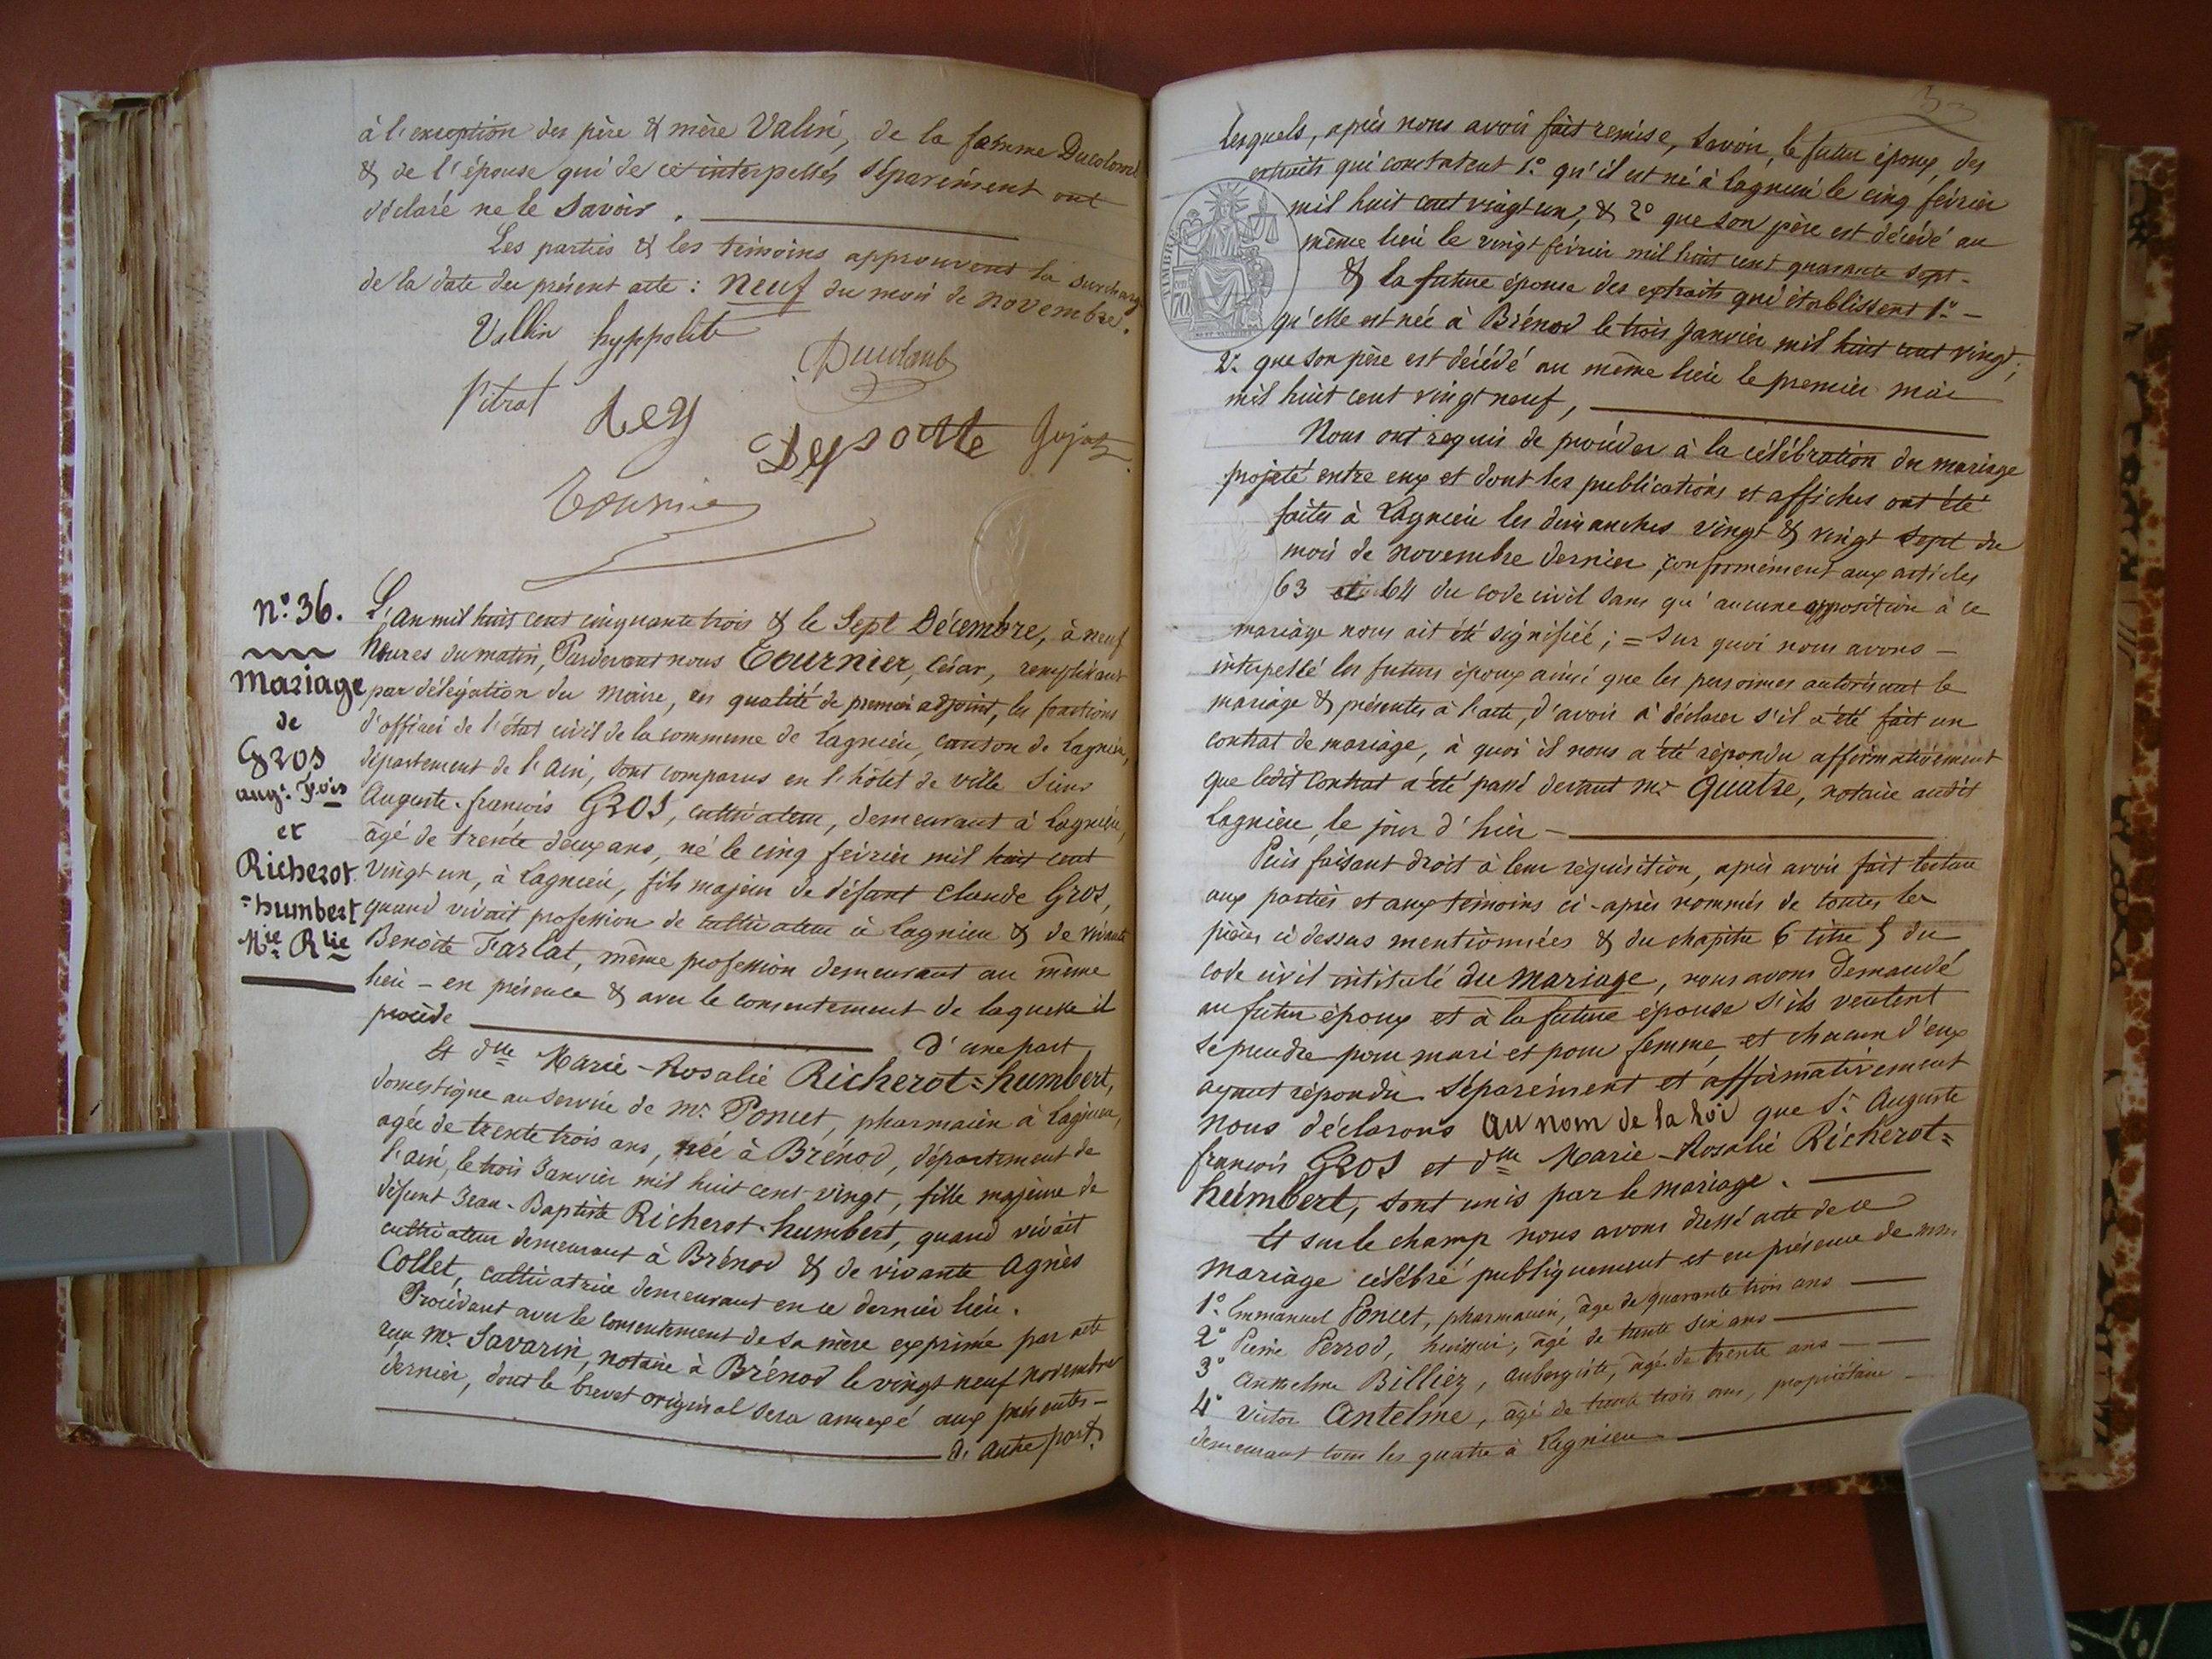 à l'exception des père & mère Valin, de la femme Ducolomb
& de l'épouse qui de ce interpellés séparément ont
déclaré ne le savoir.
Les parties & les témoins approuvent la surcharge
de la date du présent acte : neuf du mois de novembre.
Vallin hyppolite
Pitrat Rey
Tournier
n.º 36.
Mariage
de
Gros
aug.te F.ois
et
Richerot
=humbert
M.ie R.lie
L'an mil huit cent cinquante trois & le Sept Décembre, à neuf
heures du matin, Pardevant nous Tournier, César, remplissant
par délégation du Maire, en qualité de premier adjoint, les fonctions
d'officier de l'état civil de la commune de Lagnieu, canton de Lagnieu,
département de l'ain, sont comparus en l'hôtel de ville Sieur
Auguste-françois Gros, cultivateur, demeurant à Lagnieu,
âgé de trente deux ans, né le cinq février mil huit cent
vingt un, à Lagnieu, fils majeur de défunt Claude Gros,
quand vivait profession de cultivateur à Lagnieu & de vivante
Benoite Farlat, même profession demeurant au même
lieu - en présence & avec le consentement de laquelle il
procède d'une part
Et dlle Marie-Rosalie Richerot=humbert,
domestique au service de Mr Poncet, pharmacien à Lagnieu,
agée de trente trois ans, née à Brénod, département de
l'ain, le trois Janvier mil huit cent vingt, fille majeure de
défunt Jean-Baptiste Richerot-humbert, quand vivait
cultivateur demeurant à Brénod & de vivante Agnès
Collet, cultivatrice demeurant en ce dernier lieu.
Procédant avec le consentement de sa mère exprimée par acte
reçu Mr Savarin, notaire à Brénod le vingt neuf novembre
dernier, dont le brevet original sera annexé aux présentes -
d'autre part.
53
Lesquels, après nous avoir fait remise, savoir, le futur époux, des
extraits qui constatent 1.º qu'il est né à Lagnieu le cinq février
mil huit cent vingt un, & 2º que son père est décédé au
même lieu le vingt février mil huit cent quarante sept -
TIMBRE
& la future épouse des extraits qui établissent 1.º -
qu'elle est née à Brénod le trois Janvier mil huit cent vingt;
2.º que son père est décédé au même lieu le premier mai
mil huit cent vingt neuf,
Nous ont requis de procéder à la célébration du mariage
projeté entre eux et dont les publications et affiches ont été
faites à Lagnieu les dimanches vingt & vingt sept du
mois de novembre dernier, conformément aux articles
63 et 64 du code civil sans qu'aucune opposition à ce
mariage nous ait été signifiée ; = Sur quoi nous avons -
interpellé les futurs époux ainsi que les personnes autorisant le
mariage & présentes à l'acte, d'avoir à déclarer s'il a été fait un
contrat de mariage, à quoi il nous a été répondu affirmativement
que ledit contrat a été passé devant Mr Quatre, notaire audit
Lagnieu, le jour d'hier -
Puis faisant droit à leur réquisition, après avoir fait lecture
aux parties et aux témoins ci-après nommés de toutes les
pièces ci dessus mentionnées & du chapitre 6 titre 5 du
code civil intitulé du mariage, nous avons demandé
au futur époux et à la future épouse s'ils veulent
se prendre pour mari et pour femme, et chacun d'eux
ayant répondu séparément et affirmativement
nous déclarons au nom de la loi que Sr Auguste
françois Gros et dlle Marie-Rosalie Richerot=
humbert, sont unis par le mariage.
Et sur le champ nous avons dressé acte de ce
mariage célébré publiquement et en présence de mm.
1.º Emmanuel Poncet, pharmacien, âgé de quarante trois ans
2.º Pierre Perrod, huissier, âgé de trente six ans
3.º Anthelme Billiez, aubergiste, âgé de trente ans
4.º Victor Antelme, âgé de trente trois ans, propriétaire -
demeurant tous les quatre à Lagnieu